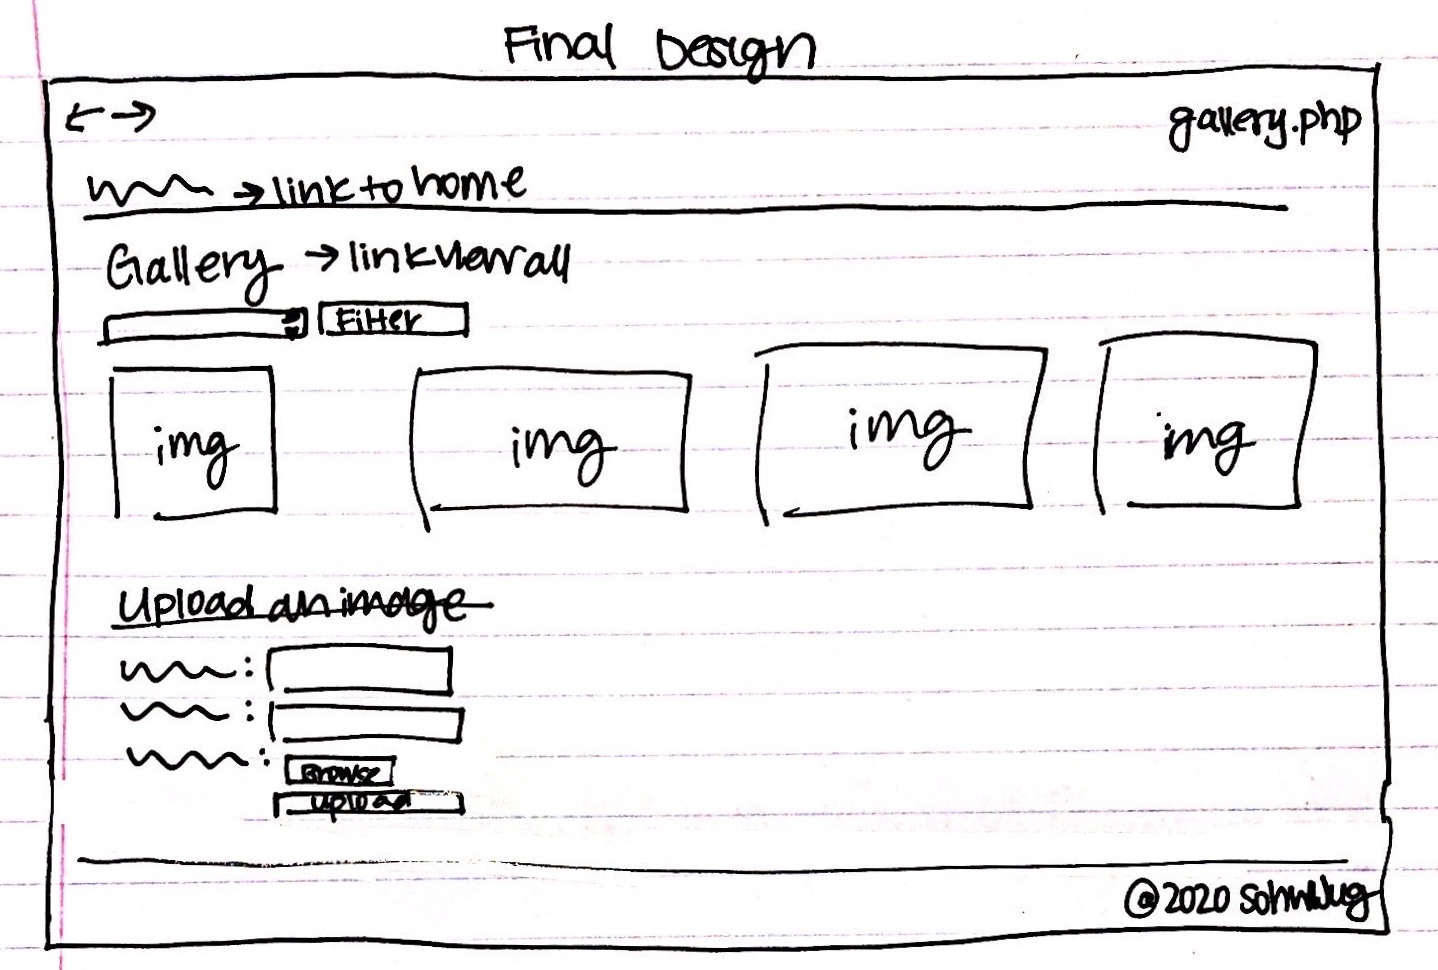 Final Design
gallery.php
→ link to home
Gallery → link view all
Filter
img img img img
Upload an image
:
:
: Browse
Upload
©2020